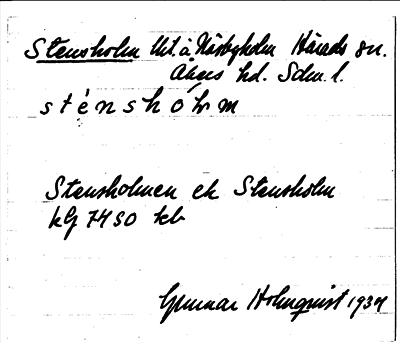 Stensholm Utj. å Näsbyholm Härads sn.
Åkers hd. Sdm. l.
sténshòḷm
Stensholmen ek Stensholm
kG 7450 kb
Gunnar Holmquist 1934